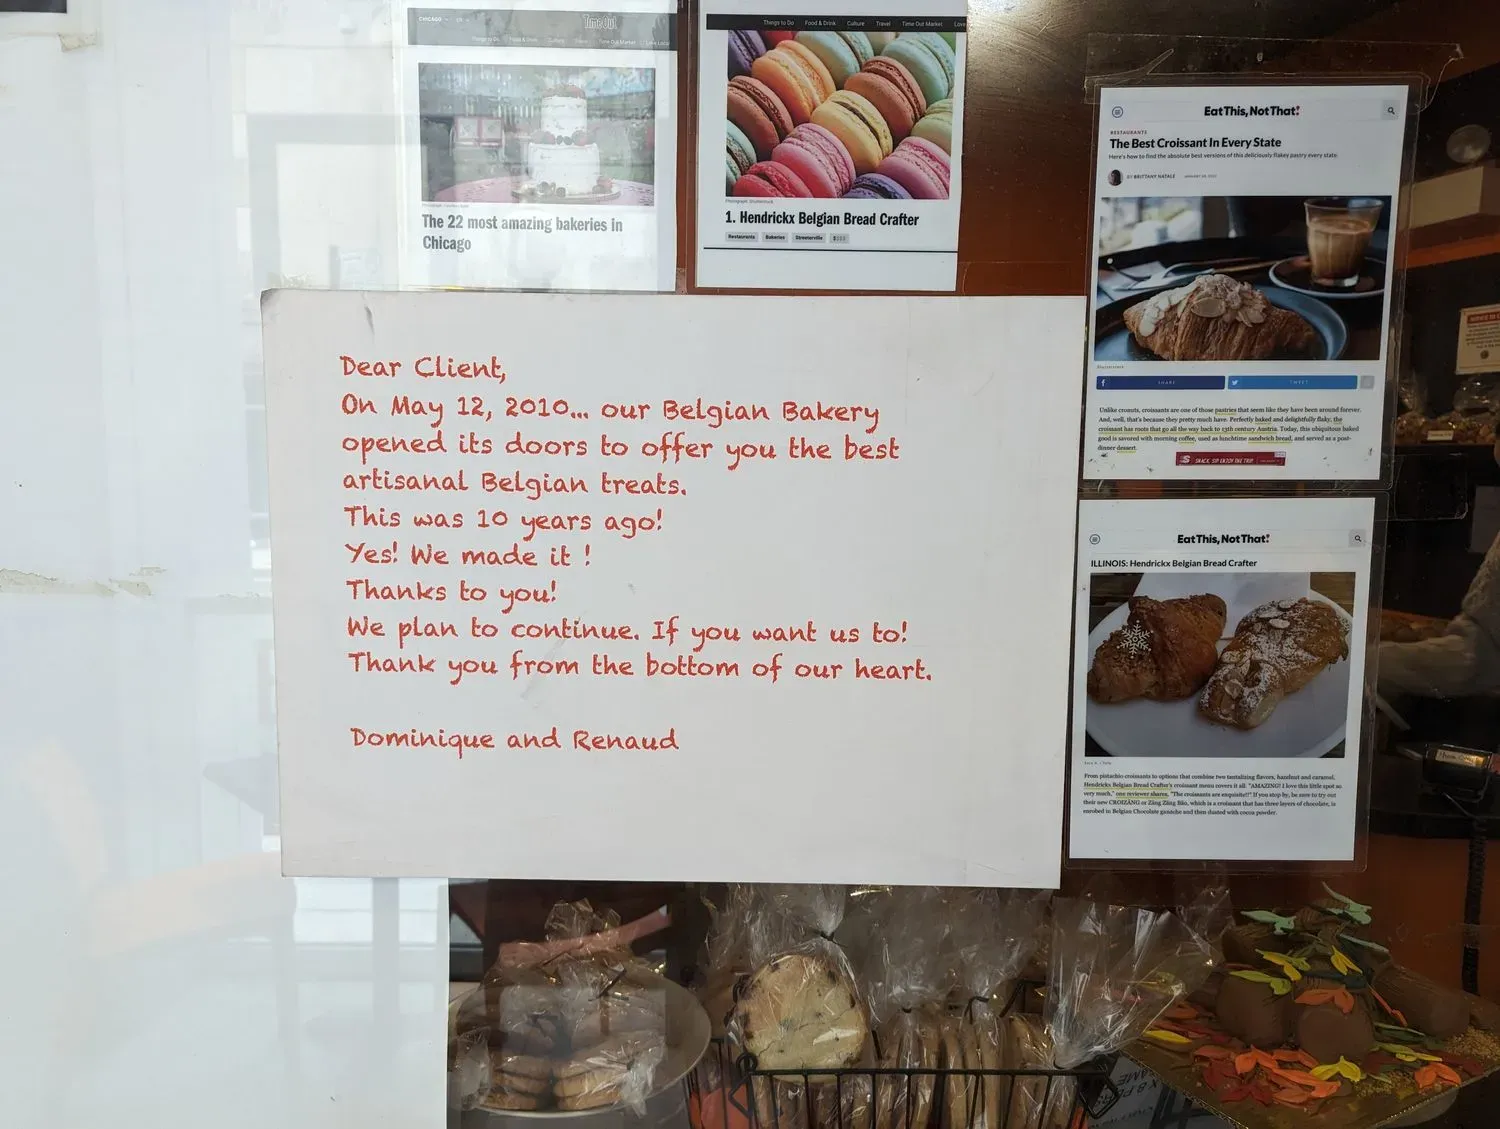 CHICAGO
TimeOut
Things to Do Food & Drink Culture Travel Time Out Market Love Local
The 22 most amazing bakeries in
Chicago
Things to Do Food & Drink Culture Travel Time Out Market Love
Photograph: Shutterstock
1. Hendrickx Belgian Bread Crafter
Restaurants Bakeries Streeterville
Eat This, Not That!
RESTAURANTS
The Best Croissant In Every State
Here's how to find the absolute best versions of this deliciously flakey pastry every state.
BY BRITTANY NATALE
Shutterstock
SHARE
TWEET
Unlike cronuts, croissants are one of those pastries that seem like they have been around forever.
And, well, that's because they pretty much have. Perfectly baked and delightfully flaky, the
croissant has roots that go all the way back to 13th century Austria. Today, this ubiquitous baked
good is savored with morning coffee, used as lunchtime sandwich bread, and served as a post-
dinner dessert.
SNACK. SIP. ENJOY THE TRIP.
Dear Client,
On May 12, 2010... our Belgian Bakery
opened its doors to offer you the best
artisanal Belgian treats.
This was 10 years ago!
Yes! We made it !
Thanks to you!
We plan to continue. If you want us to!
Thank you from the bottom of our heart.
Dominique and Renaud
Eat This, Not That!
ILLINOIS: Hendrickx Belgian Bread Crafter
From pistachio croissants to options that combine two tantalizing flavors, hazelnut and caramel,
Hendrickx Belgian Bread Crafter's croissant menu covers it all. "AMAZING! I love this little spot so
very much," one reviewer shares. "The croissants are exquisite!!" If you stop by, be sure to try out
their new CROIZÄNG or Zäng Zäng Bäo, which is a croissant that has three layers of chocolate, is
enrobed in Belgian Chocolate ganache and then dusted with cocoa powder.